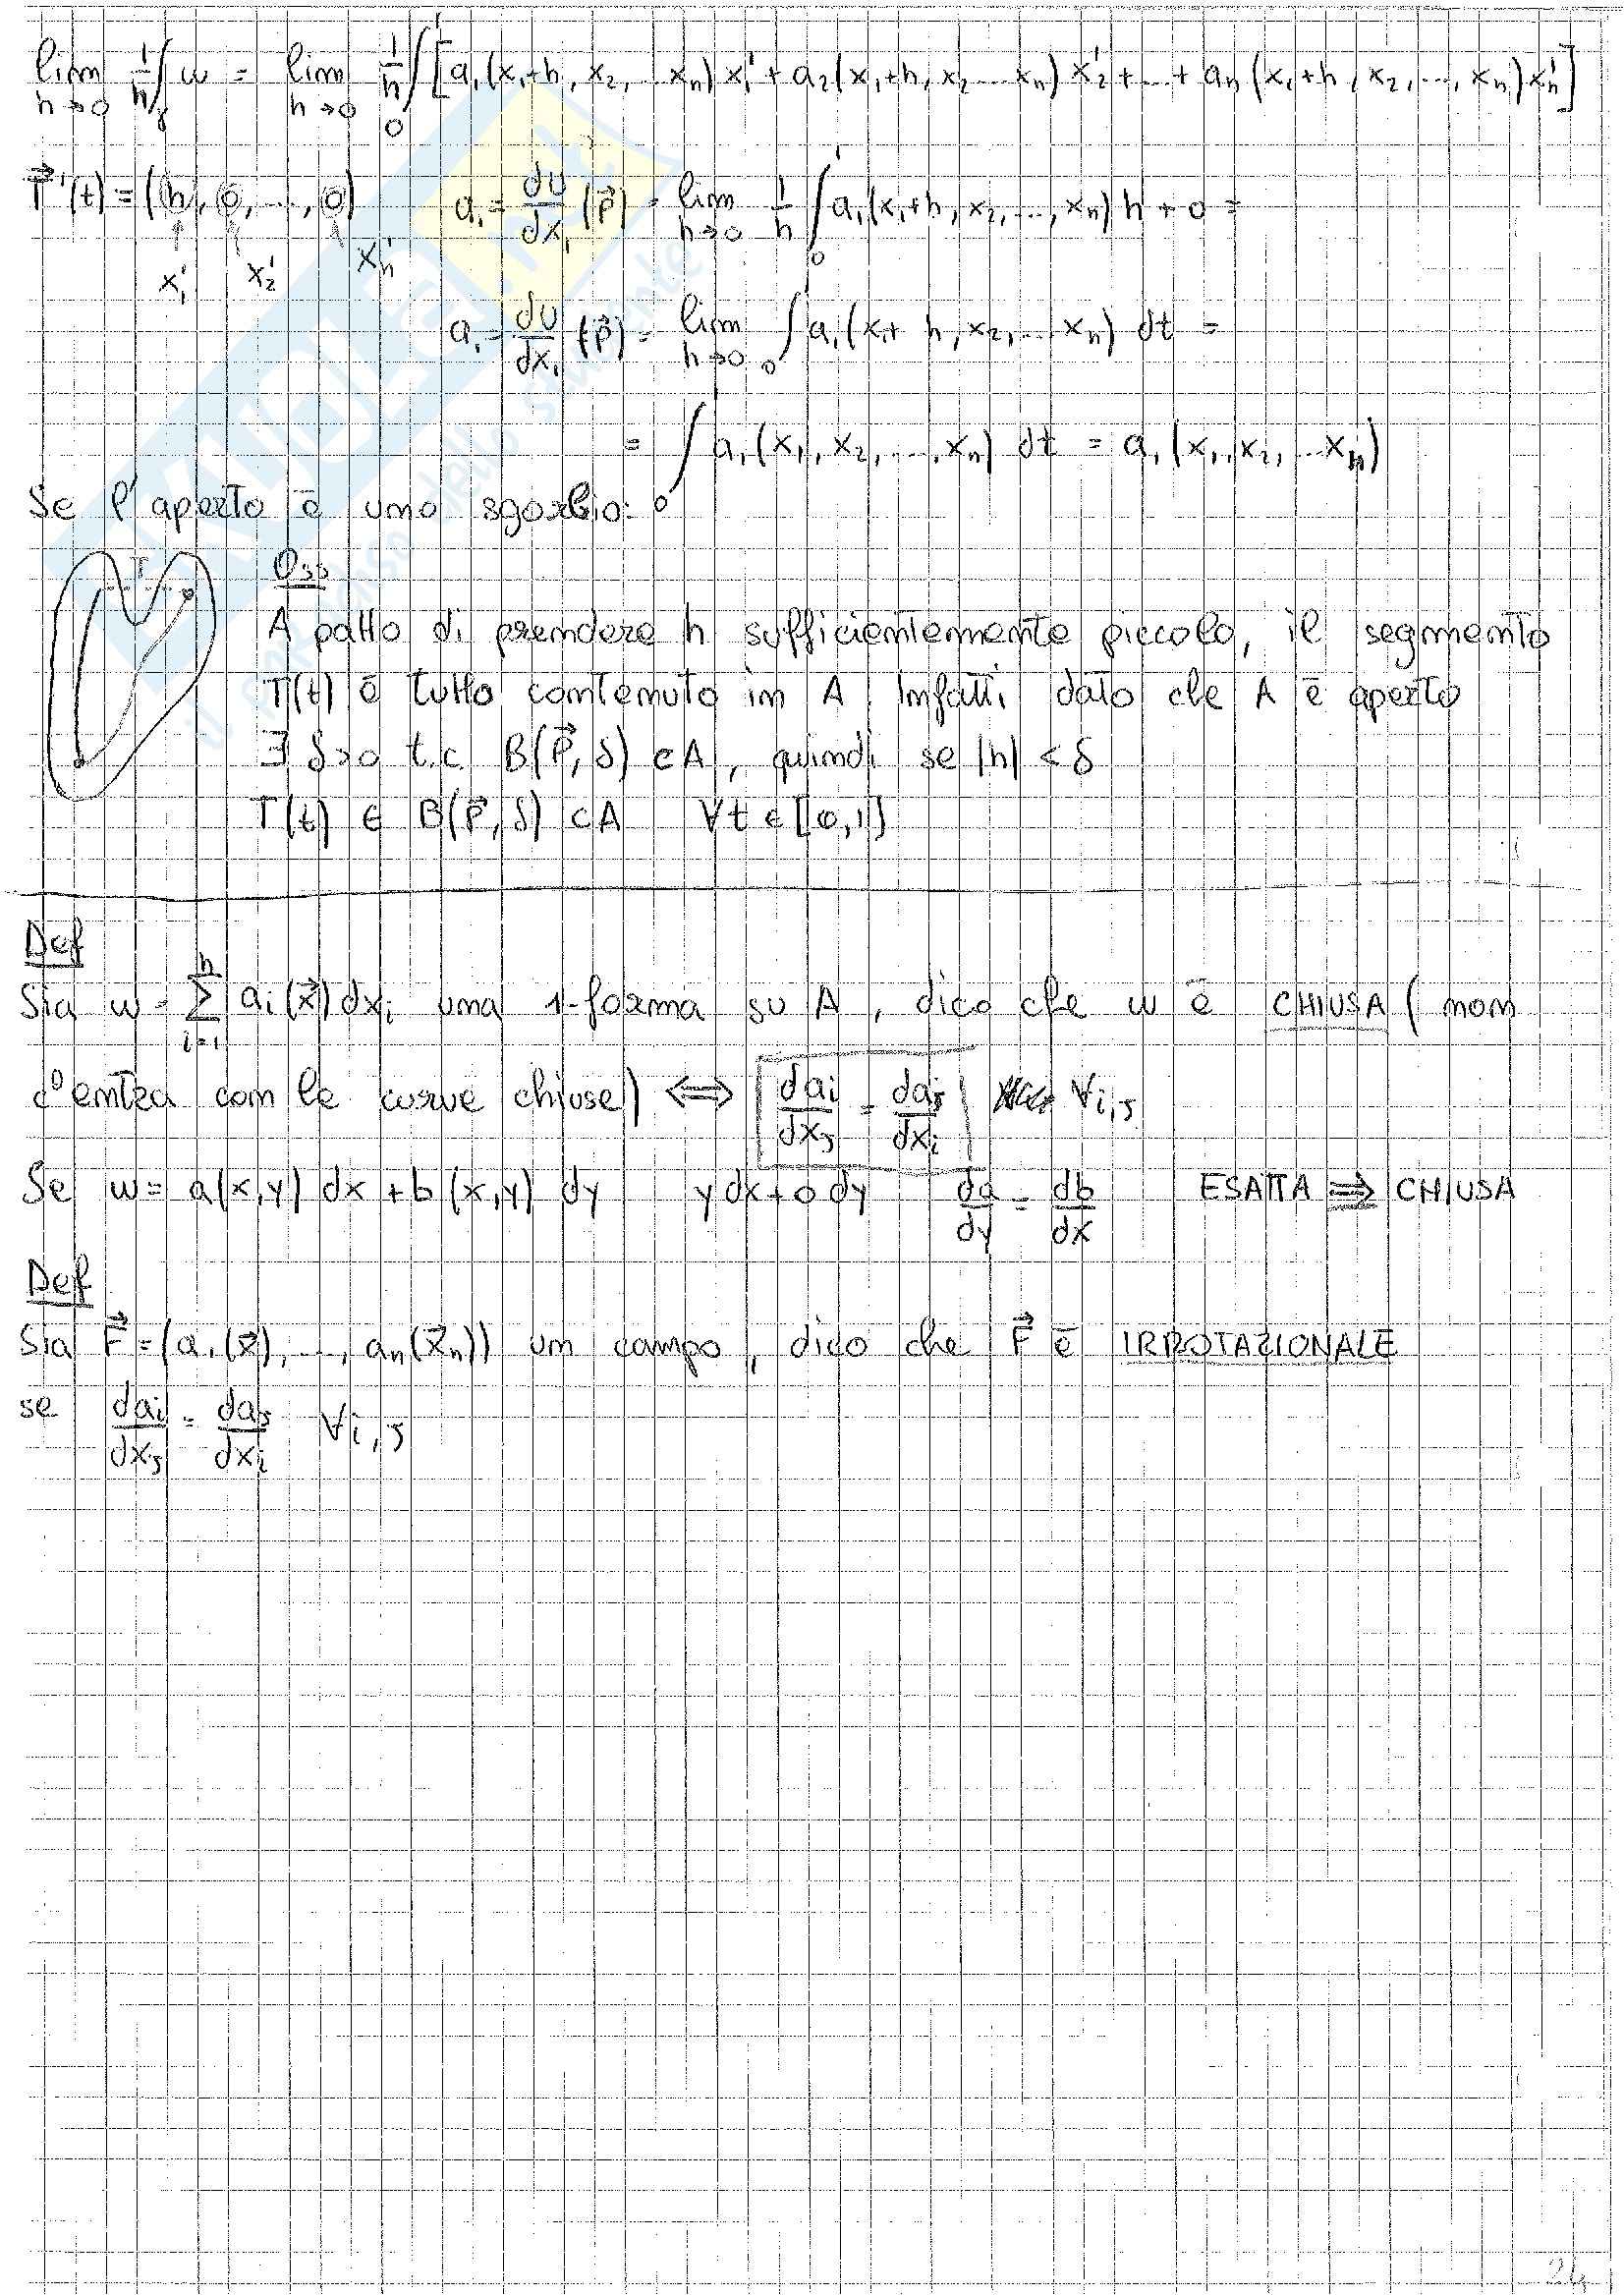 lim h→0 1/h ∫γ w = lim h→0 1/h ∫₀¹ [a₁(x₁+h, x₂, ... xn) x₁' + a₂(x₁+h, x₂ ... xn) x₂' + ... + an (x₁+h, x₂, ..., xn) xn']
T⃗'(t) = (h, 0, ..., 0) a₁ = du/dx₁ (p⃗) = lim h→0 1/h ∫₀¹ a₁(x₁+h, x₂, ..., xn) h + 0 =
x₁' x₂' xn'
a₁ = du/dx₁ (p⃗) = lim h→0 ∫₀¹ a₁(x₁+ h, x₂, ... xn) dt =
= ∫₀¹ a₁(x₁, x₂, ..., xn) dt = a₁(x₁, x₂, ... xn)
Se l'aperto è uno sgorbio:
T
Oss
A patto di prendere h sufficientemente piccolo, il segmento
T(t) è tutto contenuto in A. Infatti dato che A è aperto
∃ δ>0 t.c. B(P⃗, δ) ⊂ A, quindi se |h| < δ
T(t) ∈ B(P⃗, δ) ⊂ A ∀t ∈ [0,1]
Def
Sia w = Σ i=1 n ai(x⃗) dxi una 1-forma su A, dico che w è CHIUSA (non
c'entra con le curve chiuse) ⟺ dai/dxj = daj/dxi ∀i,j
Se w = a(x,y) dx + b(x,y) dy y dx + 0 dy da/dy = db/dx ESATTA ⟹ CHIUSA
Def
Sia F⃗ = (a₁(x⃗), ..., an(x⃗n)) un campo, dico che F⃗ è IRROTAZIONALE
se dai/dxj = daj/dxi ∀i,j